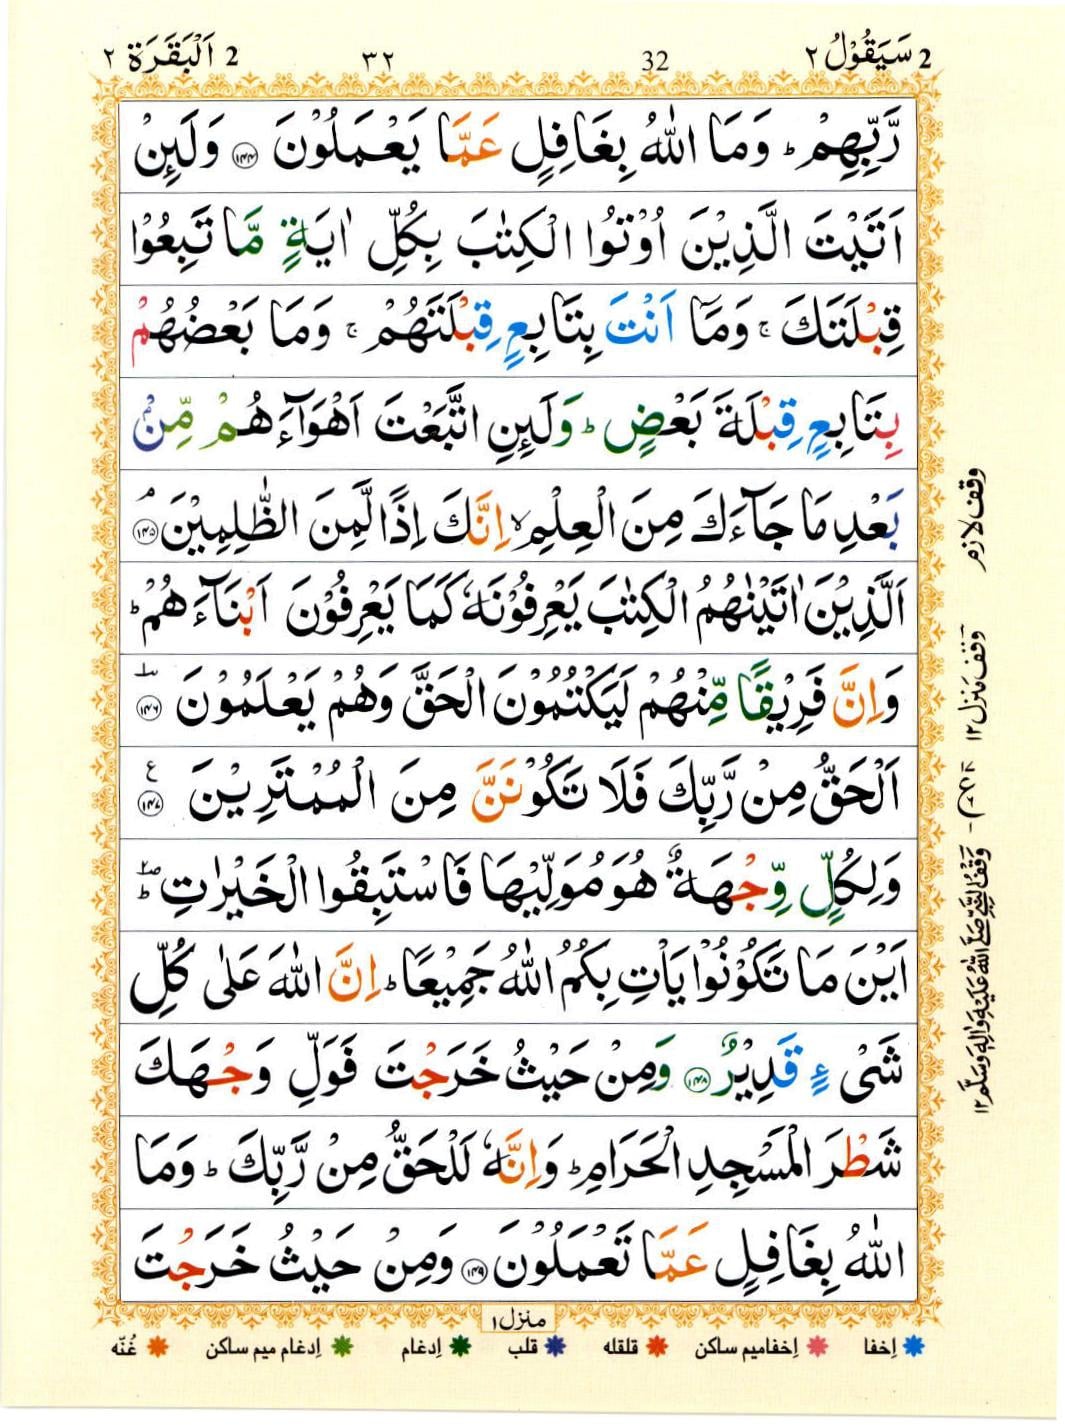 2 سَيَقُوْلُ ٢
32
٣٢
2 اَلْبَقَرَة ٢
رَّبِّهِمْ ؕ وَمَا اللّٰهُ بِغَافِلٍ عَمَّا يَعْمَلُوْنَ ﴿۱۴۴﴾ وَلَئِنْ
اَتَيْتَ الَّذِيْنَ اُوْتُوا الْكِتٰبَ بِكُلِّ اٰيَةٍ مَّا تَبِعُوْا
قِبْلَتَكَ ۚ وَمَاۤ اَنْتَ بِتَابِعٍ قِبْلَتَهُمْ ۚ وَمَا بَعْضُهُمْ
بِتَابِعٍ قِبْلَةَ بَعْضٍ ؕ وَلَئِنِ اتَّبَعْتَ اَهْوَآءَهُمْ مِّنْۢ
بَعْدِ مَا جَآءَكَ مِنَ الْعِلْمِ ۙ اِنَّكَ اِذًا لَّمِنَ الظّٰلِمِيْنَ ﴿۱۴۵﴾ۘ
اَلَّذِيْنَ اٰتَيْنٰهُمُ الْكِتٰبَ يَعْرِفُوْنَهٗ كَمَا يَعْرِفُوْنَ اَبْنَآءَهُمْ ؕ
وَاِنَّ فَرِيْقًا مِّنْهُمْ لَيَكْتُمُوْنَ الْحَقَّ وَهُمْ يَعْلَمُوْنَ ﴿۱۴۶﴾
اَلْحَقُّ مِنْ رَّبِّكَ فَلَا تَكُوْنَنَّ مِنَ الْمُمْتَرِيْنَ ﴿۱۴۷﴾ ع
وَلِكُلٍّ وِّجْهَةٌ هُوَ مُوَلِّيْهَا فَاسْتَبِقُوا الْخَيْرٰتِ ؕ
اَيْنَ مَا تَكُوْنُوْا يَاْتِ بِكُمُ اللّٰهُ جَمِيْعًا ؕ اِنَّ اللّٰهَ عَلٰى كُلِّ
شَىْءٍ قَدِيْرٌ ﴿۱۴۸﴾ وَمِنْ حَيْثُ خَرَجْتَ فَوَلِّ وَجْهَكَ
شَطْرَ الْمَسْجِدِ الْحَرَامِ ؕ وَاِنَّهٗ لَلْحَقُّ مِنْ رَّبِّكَ ؕ وَمَا
اللّٰهُ بِغَافِلٍ عَمَّا تَعْمَلُوْنَ ﴿۱۴۹﴾ وَمِنْ حَيْثُ خَرَجْتَ
وقف لازم
وقف منزل ۱۲
وَقْفُ النَّبِيِّ صَلَّى اللّٰهُ عَلَيْهِ وَاٰلِهٖ وَسَلَّمَ ۱۲
منزل ۱
اِخفا
اِخفامیم ساکن
قلقله
قلب
اِدغام
اِدغام میم ساکن
غُنّه